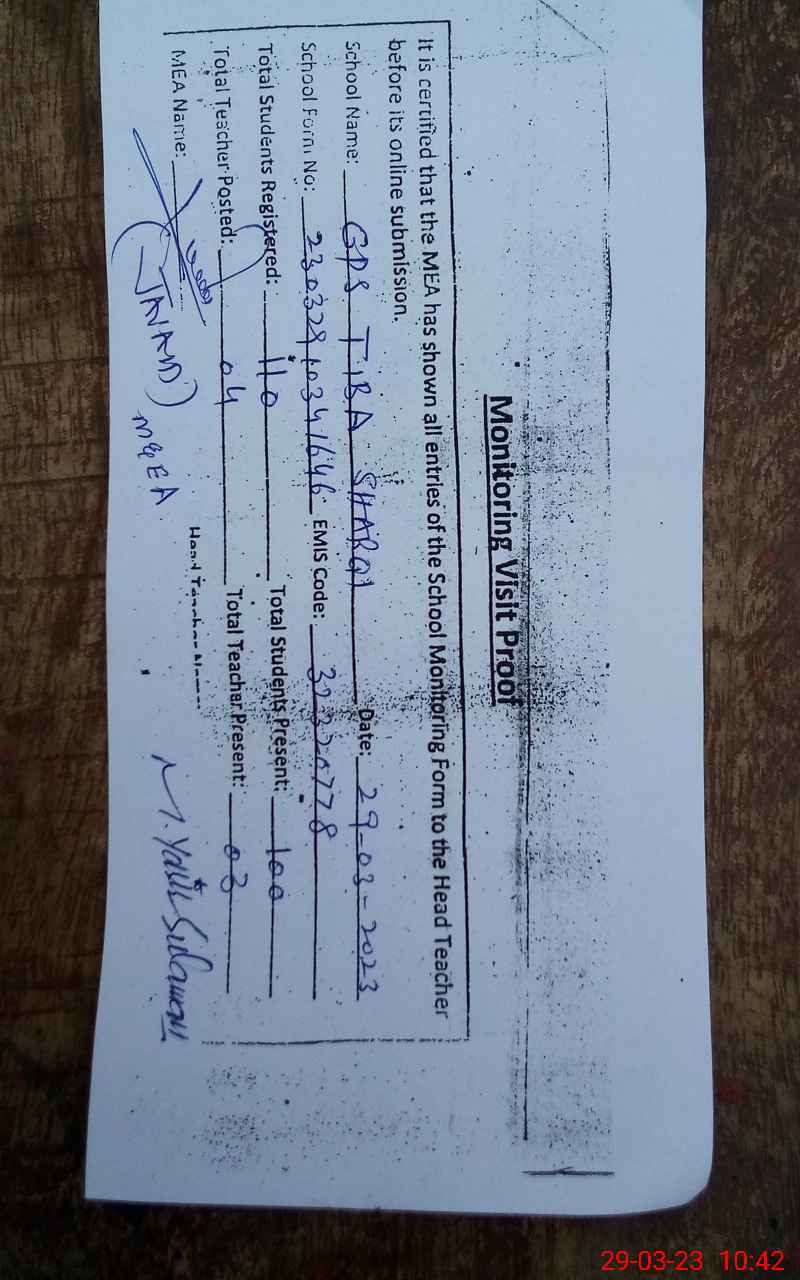 Monitoring Visit Proof
It is certified that the MEA has shown all entries of the School Monitoring Form to the Head Teacher
before its online submission.
School Name: GPS TIBA SHARQI Date: 29-03-2023
School Form No: EMIS Code: 32320778
Total Students Registered: 110 Total Students Present: 100
Total Teacher Posted: 04 Total Teacher Present: 03
MEA Name: (JAVAID) M&EA
Head Teacher Name: M. Yasir
29-03-23 10:42